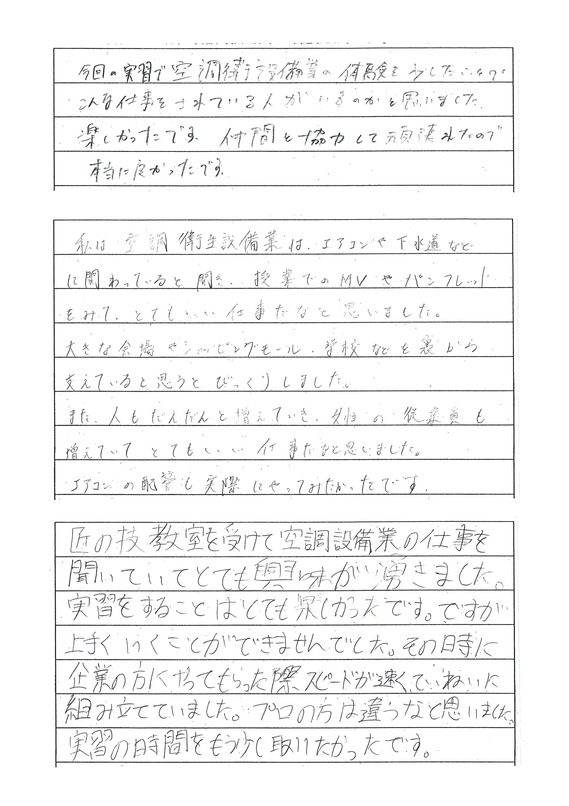 今回の実習で空調衛生設備業の体験を少ししたことなので
こんな仕事をされている人がいるのかと思いました。
楽しかったです。仲間と協力して頑張れたので
本当に良かったです。
私は空調衛生設備業は、エアコンや下水道など
に関わっていると聞き、授業でのMVやパンフレット
をみて、とてもいい仕事だなと思いました。
大きな会場やショッピングモール、学校などを裏から
支えていると思うとびっくりしました。
また、人もだんだんと増えていき、女性の従業員も
増えていてとてもいい仕事だなと思いました。
エアコンの配管も実際にやってみたかったです。
匠の技教室を受けて空調設備業の仕事を
聞いていてとても興味が湧きました。
実習をすることはとても楽しかったです。ですが
上手くいくことができませんでした。その時に
企業の方にやってもらった際スピードが速くていねいに
組み立てていました。プロの方は違うなと思いました。
実習の時間をもう少し取りたかったです。